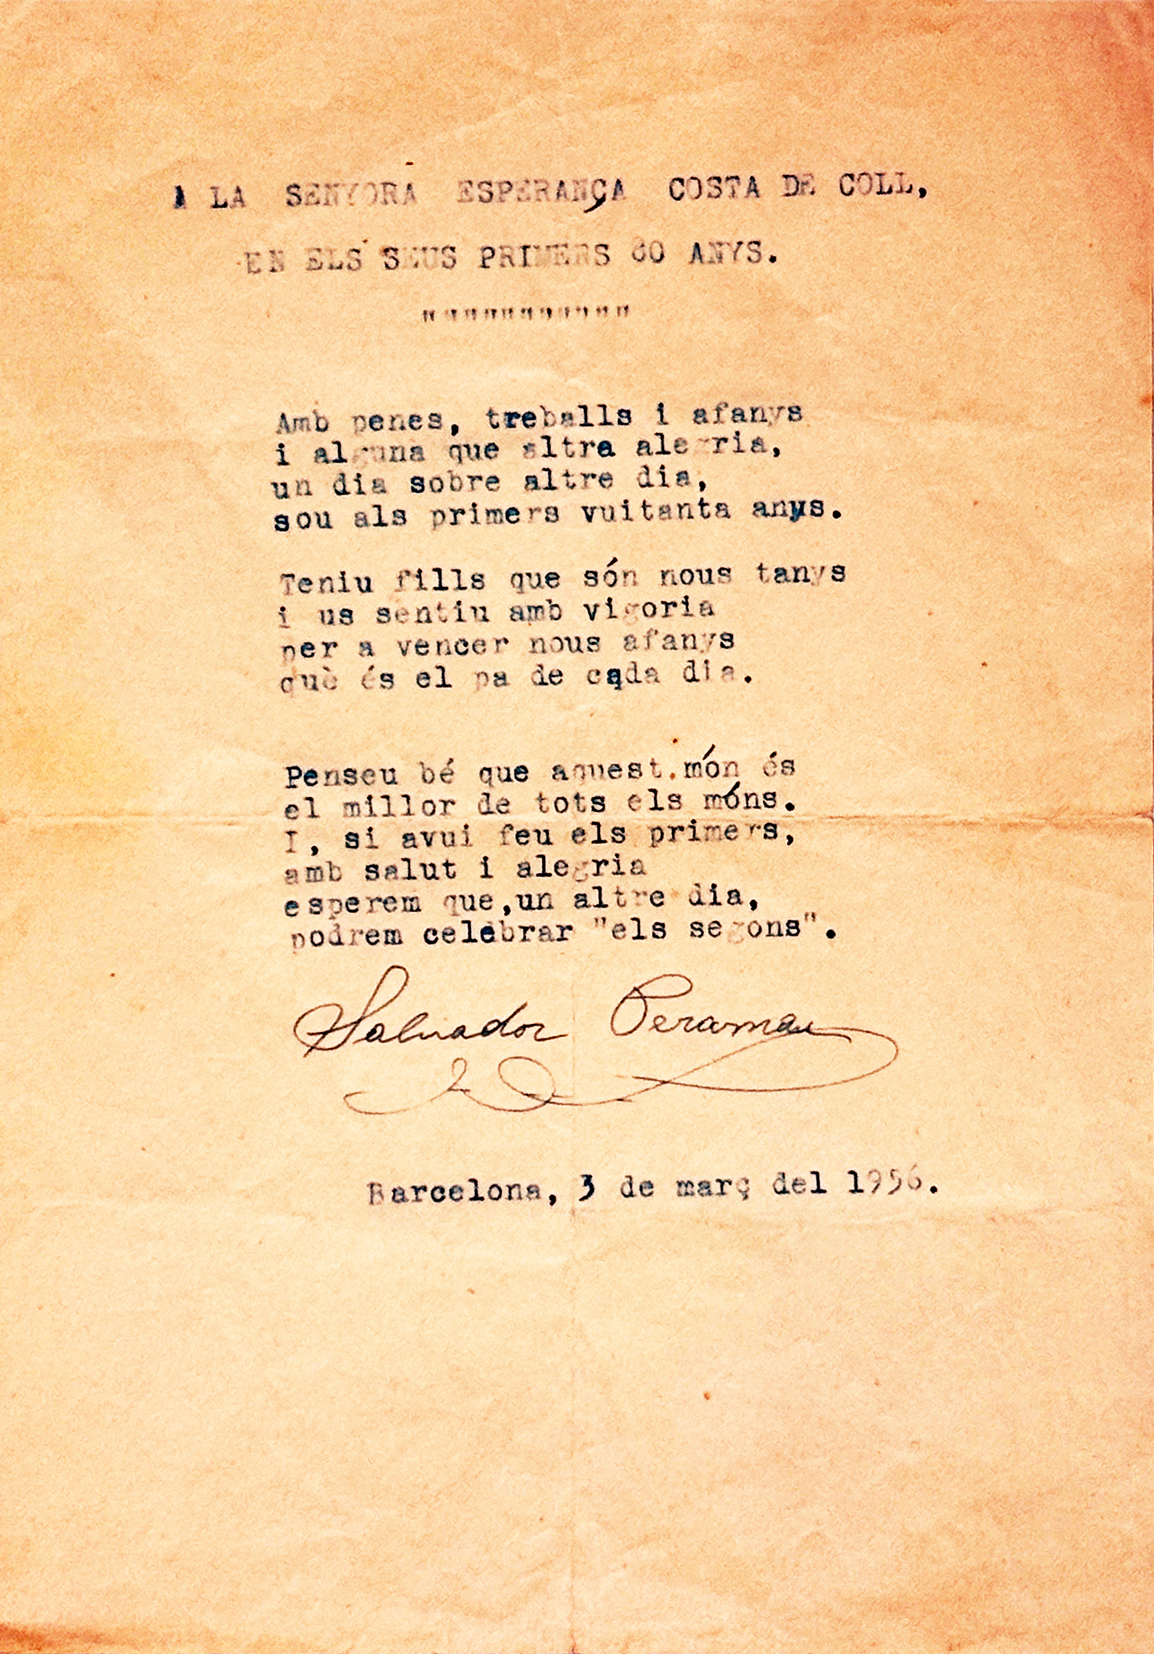 A LA SENYORA ESPERANÇA COSTA DE COLL,
EN ELS SEUS PRIMERS 80 ANYS.
"""""""""""
Amb penes, treballs i afanys
i alguna que altra alegria,
un dia sobre altre dia,
sou als primers vuitanta anys.
Teniu fills que són nous tanys
i us sentiu amb vigoria
per a vencer nous afanys
què és el pa de cada dia.
Penseu bé que aquest món és
el millor de tots els móns.
I, si avui feu els primers,
amb salut i alegria
esperem que,un altre dia,
podrem celebrar "els segons".
Salvador Peramau
Barcelona, 3 de març del 1956.